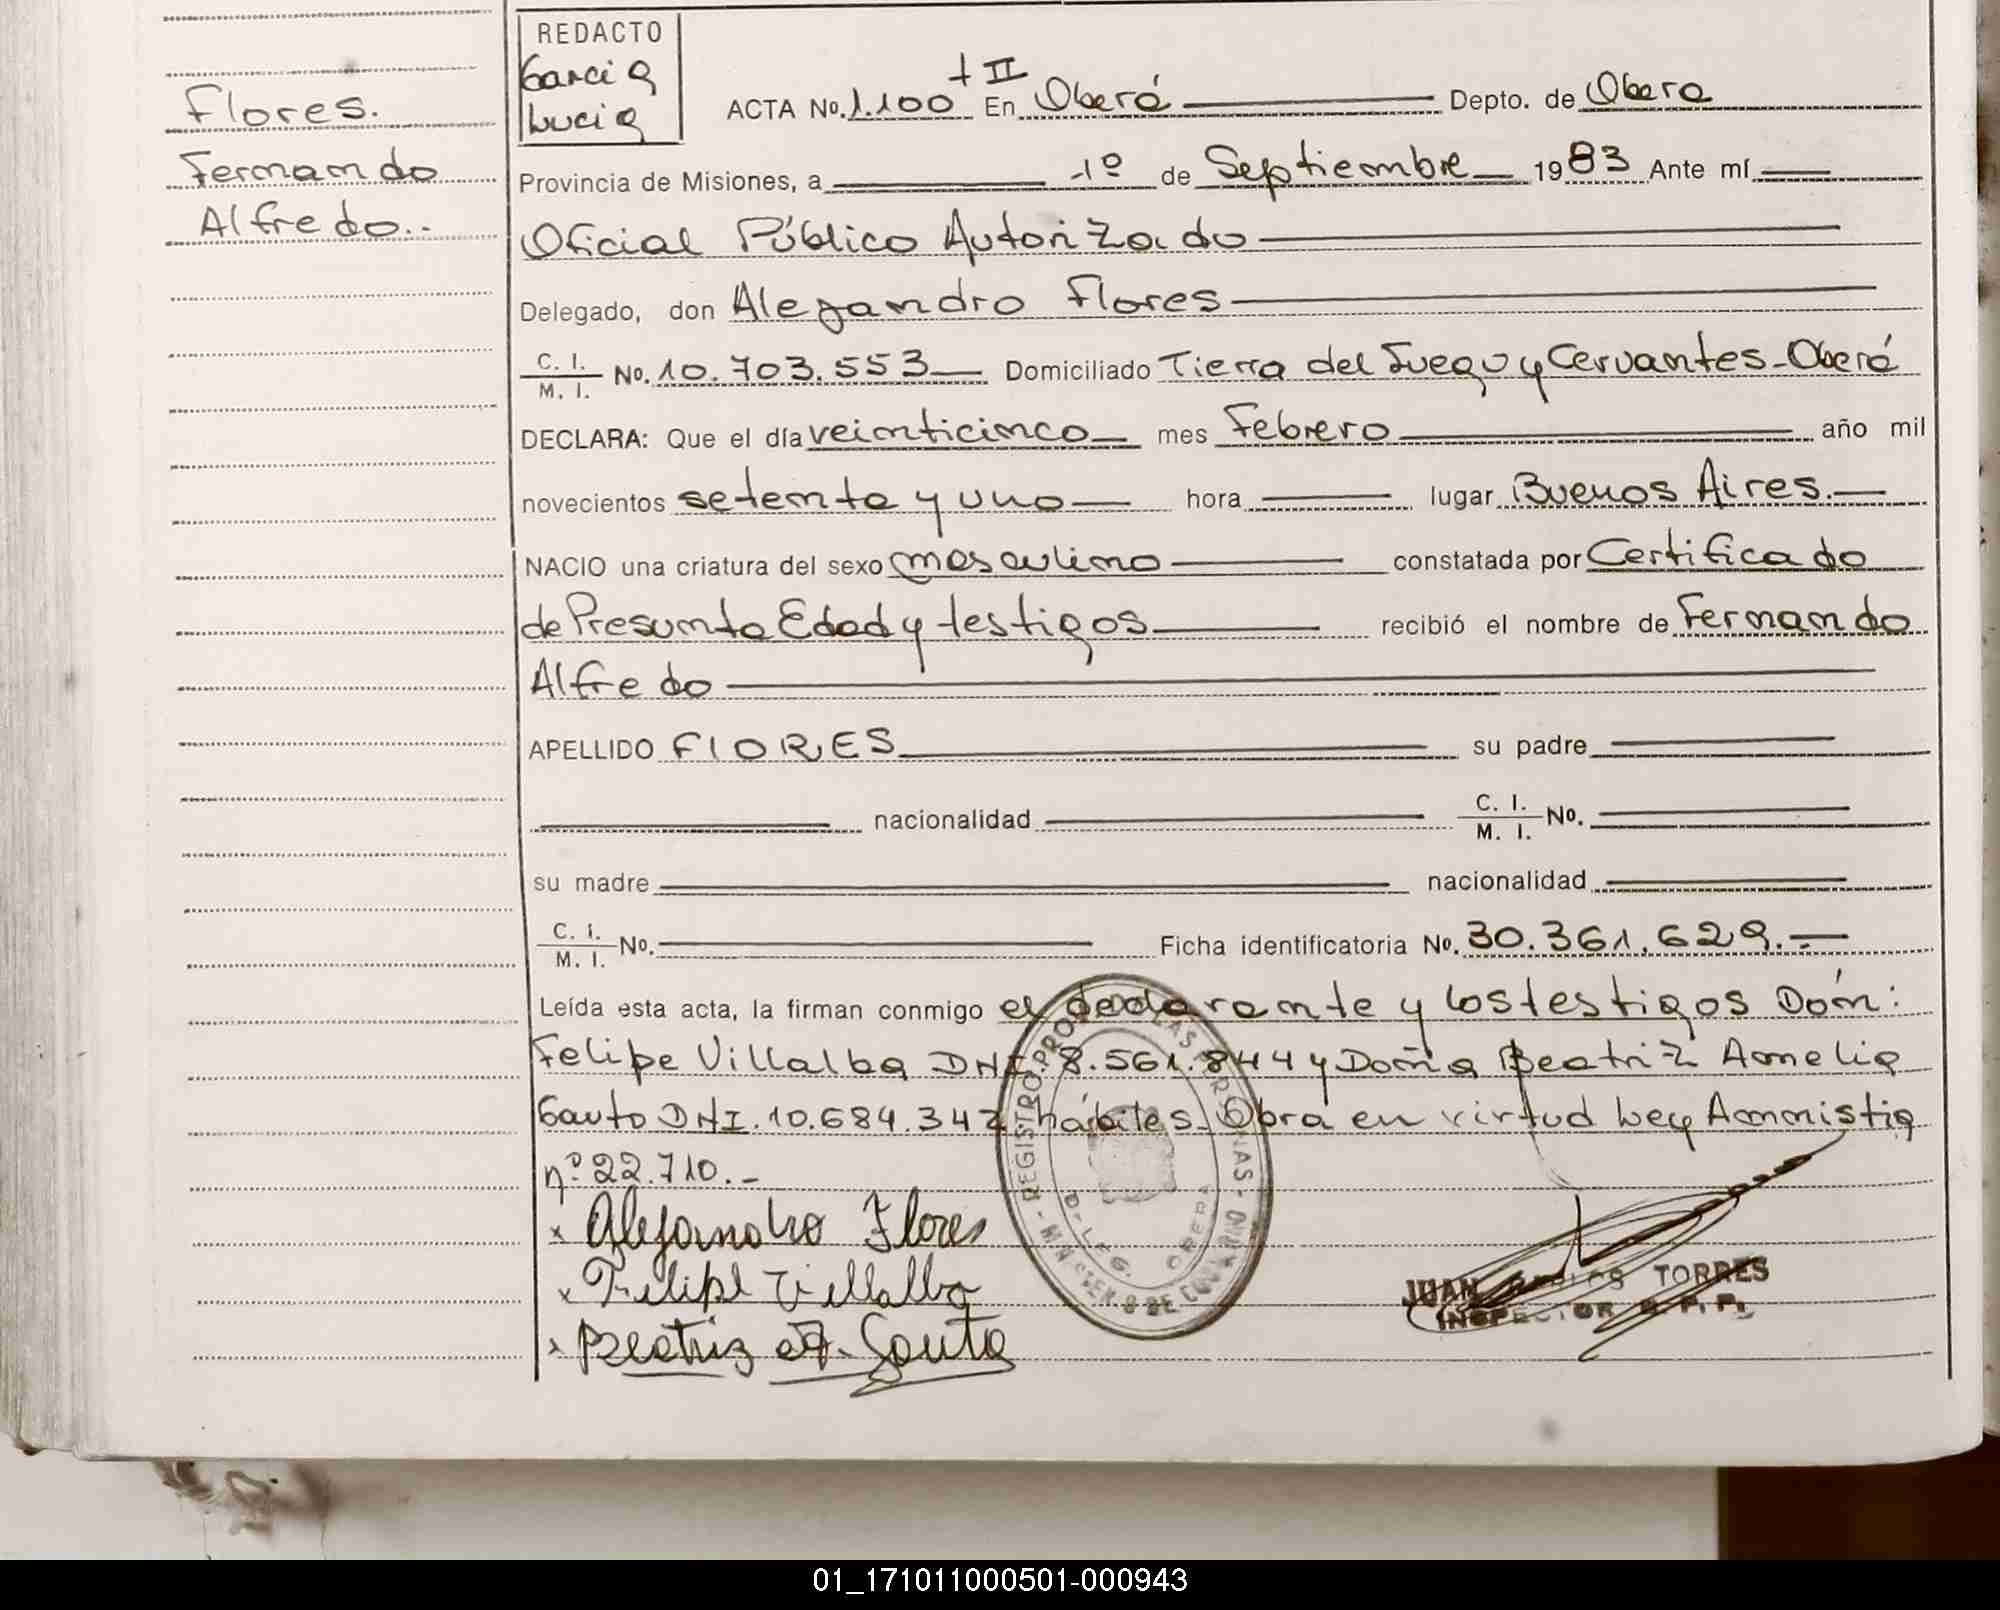 Flores.
Fernando
Alfredo..
REDACTO
Garcia
Lucia
ACTA No. 1.100 + II En Oberá Depto. de Obera
Provincia de Misiones, a 1º de Septiembre 1983 Ante mí
Oficial Público Autorizado
Delegado, don Alejandro Flores
C. I. / M. I. No. 10.703.553 Domiciliado Tierra del Fuego y Cervantes-Oberá
DECLARA: Que el día veinticinco mes Febrero año mil
novecientos setenta y uno hora lugar Buenos Aires.
NACIO una criatura del sexo masculino constatada por Certificado
de Presunta Edad y testigos recibió el nombre de Fernando
Alfredo
APELLIDO FlORES su padre
nacionalidad C. I. / M. I. No.
su madre nacionalidad
C. I. / M. I. No. Ficha identificatoria No. 30.361.629.-
Leída esta acta, la firman conmigo el declarante y los testigos Dón:
Felipe Villalba DNI 8.561.844 y Doña Beatriz Amelia
Gauto DNI. 10.684.342 hábiles. Obra en virtud Ley Amnistia
nº 22.710.-
x Alejandro Flores
x Felipe Villalba
x Beatriz A. Gauto
REGISTRO PROV. LAS PERSONAS
DELEG. OBERA
JUAN CARLOS TORRES
INSPECTOR R. P. P.
01_171011000501-000943